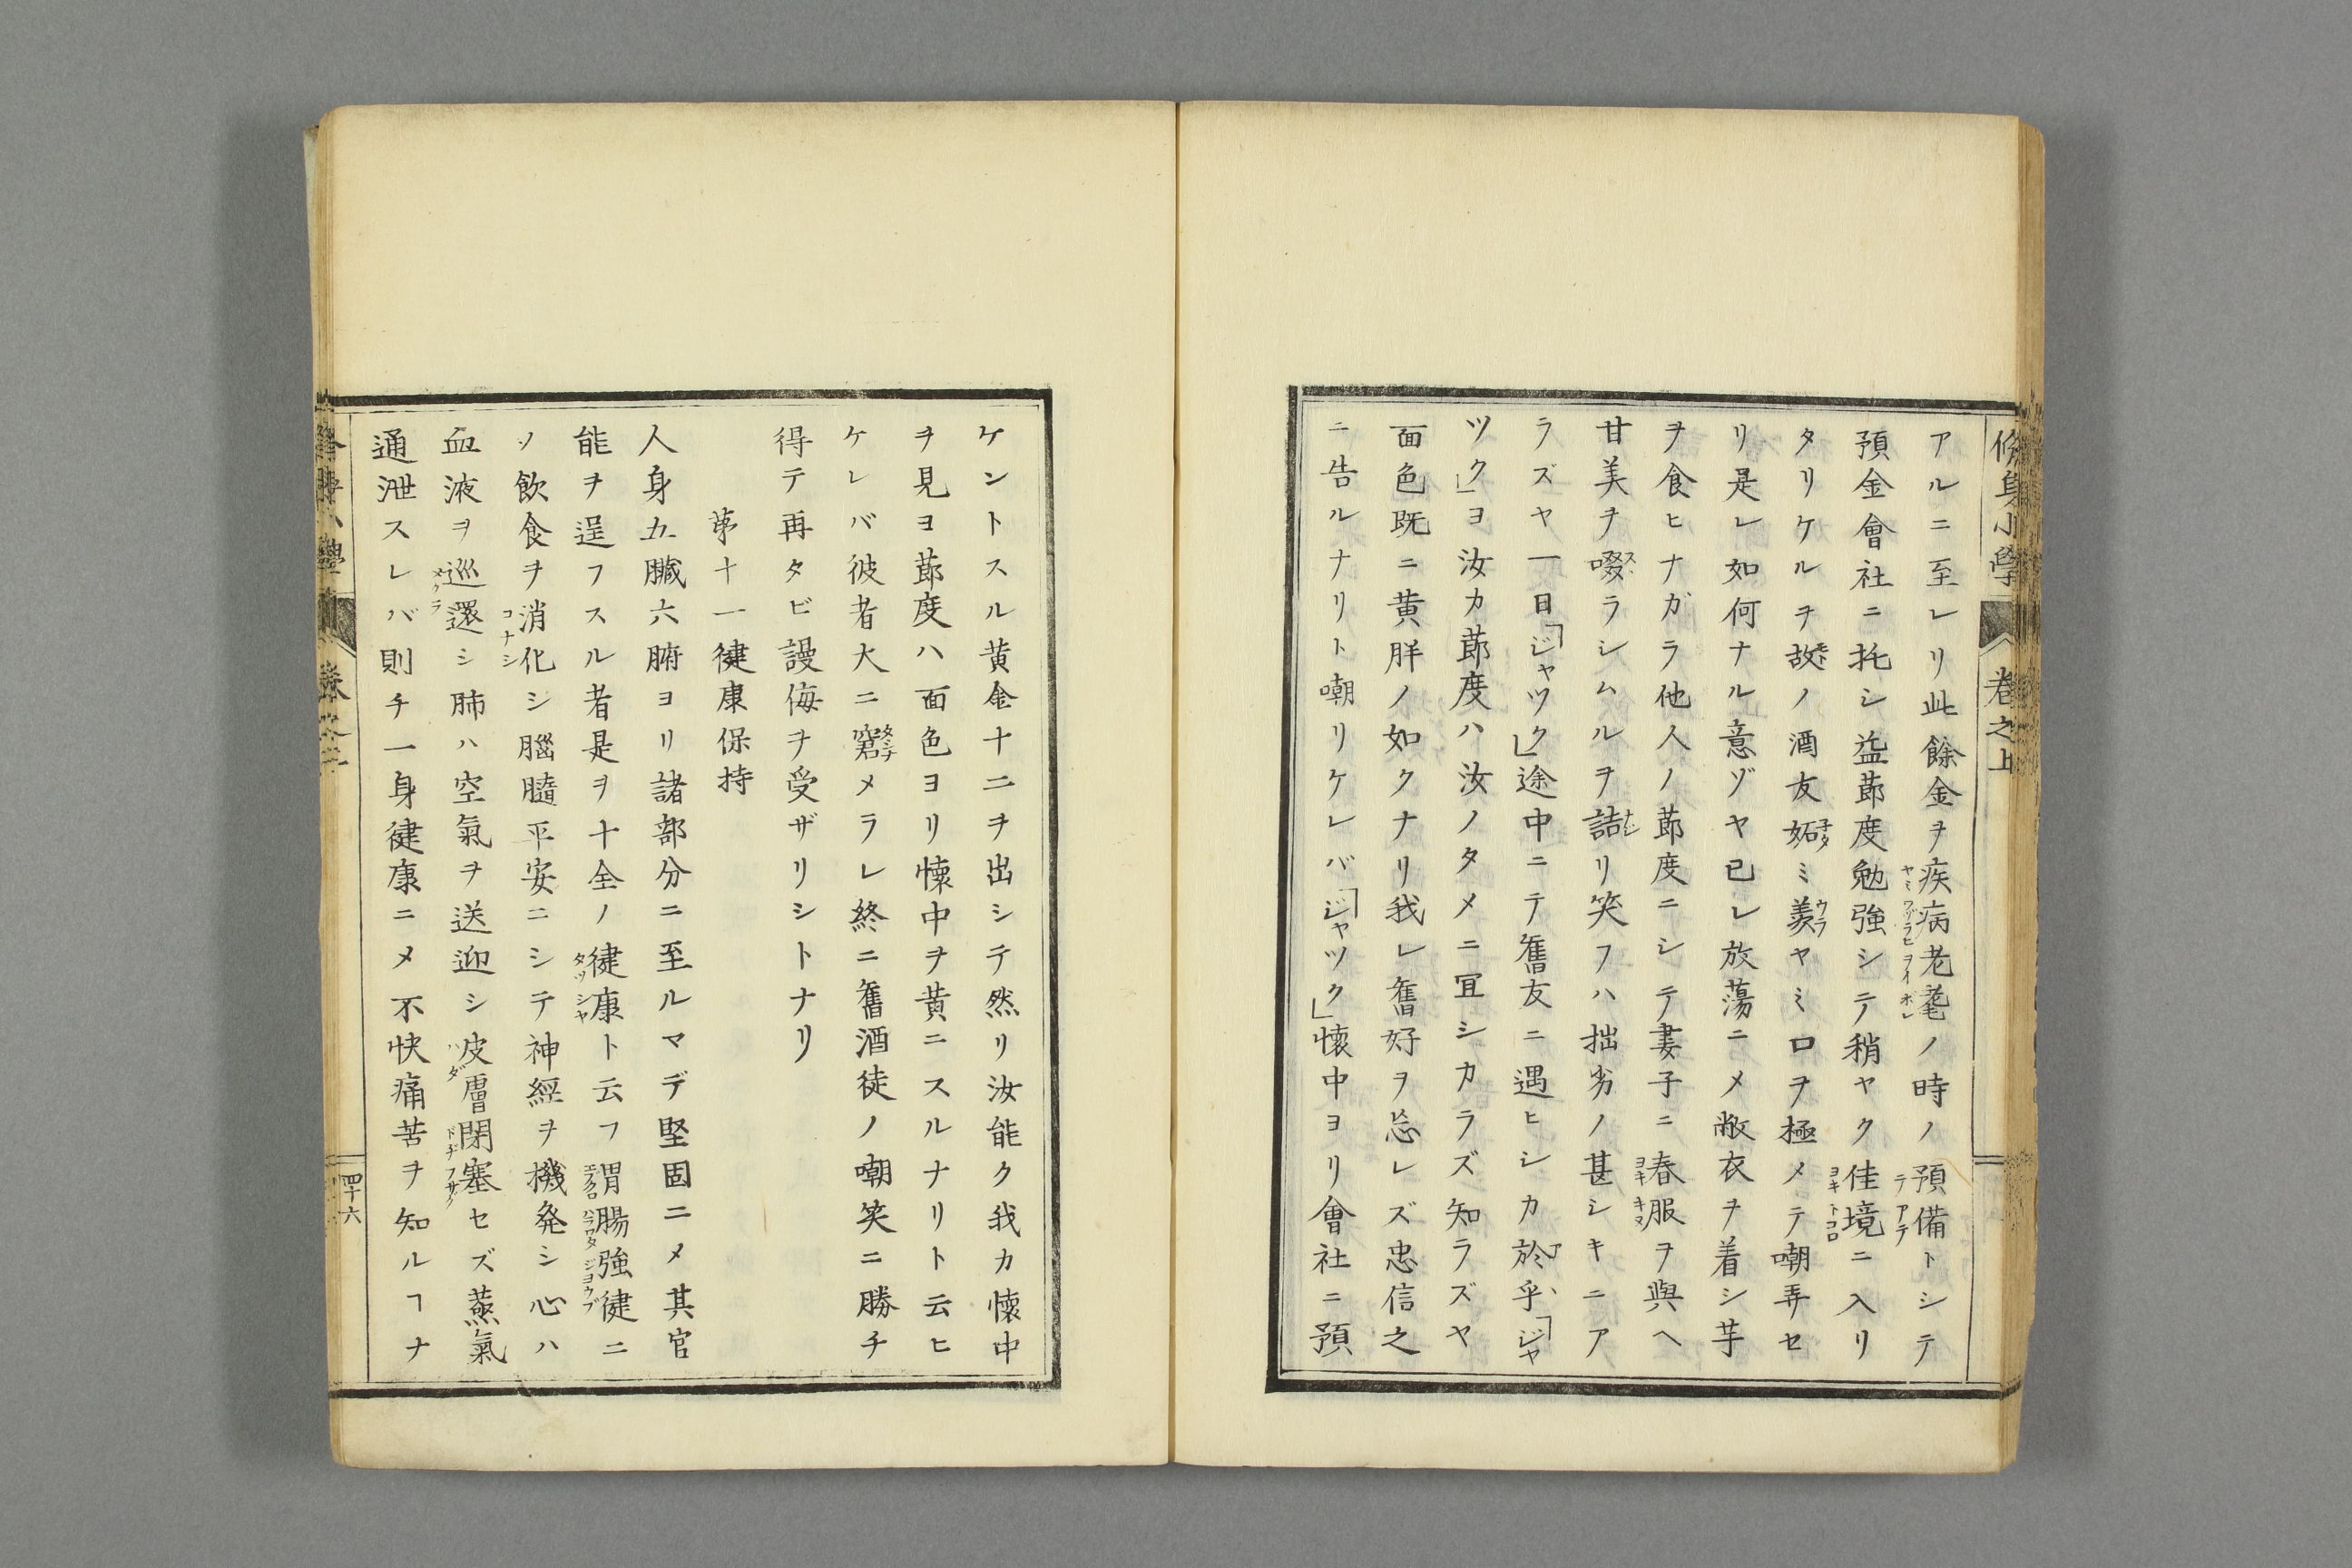 修身小學
卷之上
アルニ至レリ此餘金ヲ疾病老耄ノ時ノ預備トシテ
預金會社ニ托シ益莭度勉強シテ稍ヤク佳境ニ入リ
タリケルヲ故ノ酒友妬ミ羨ヤミ口ヲ極メテ嘲弄セ
リ是レ如何ナル意ゾヤ已レ放蕩ニメ敝衣ヲ着シ芋
ヲ食ヒナガラ他人ノ莭度ニシテ妻子ニ春服ヲ與ヘ
甘美ヲ啜ラシムルヲ詰リ笑フハ拙劣ノ甚シキニア
ラズヤ一日「ジャツク」途中ニテ舊友ニ遇ヒシカ於乎「ジャ
ツク」ヨ汝カ莭度ハ汝ノタメニ冝シカラズ知ラズヤ
面色既ニ黄胖ノ如クナリ我レ舊好ヲ忘レズ忠信之
ニ告ルナリト嘲リケレバ「ジャツク」懷中ヨリ會社ニ預
ケントスル黄金十二ヲ出シテ然リ汝能ク我カ懷中
ヲ見ヨ莭度ハ面色ヨリ懷中ヲ黄ニスルナリト云ヒ
ケレバ彼者大ニ窘メラレ終ニ舊酒徒ノ嘲笑ニ勝チ
得テ再タビ謾侮ヲ受ザリシトナリ
苐十一健康保持
人身五臓六腑ヨリ諸部分ニ至ルマデ堅固ニメ其官
能ヲ逞フスル者是ヲ十全ノ健康ト云フ胃腸強健ニ
ソ飲食ヲ消化シ腦髓平安ニシテ神經ヲ機発シ心ハ
血液ヲ巡還シ肺ハ空氣ヲ送迎シ皮膚閉塞セズ蒸氣
通泄スレバ則チ一身健康ニメ不快痛苦ヲ知ルヿナ
四十六